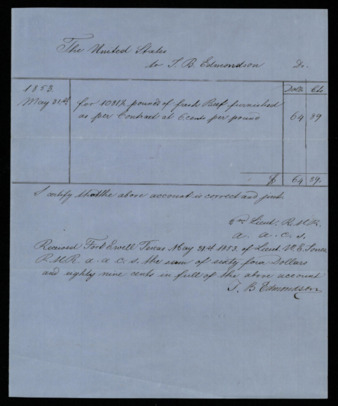 The United States
to T. B. Edmondson Dr.
Dolls Cts
1853
May 31st for 1081½ pounds of fresh Beef furnished
as per Contract at 6 cents per pound 64 89
$ 64 89.
I certify that the above account is correct and just.
Lieut. R.M.R.
a. a. c. s.
Received Fort Ewell Texas May 31st 1853. of Lieut
R.M.R. a. a. c. s. the sum of sixty four Dollars
and eighty nine cents in full of the above account
T. B. Edmondson.